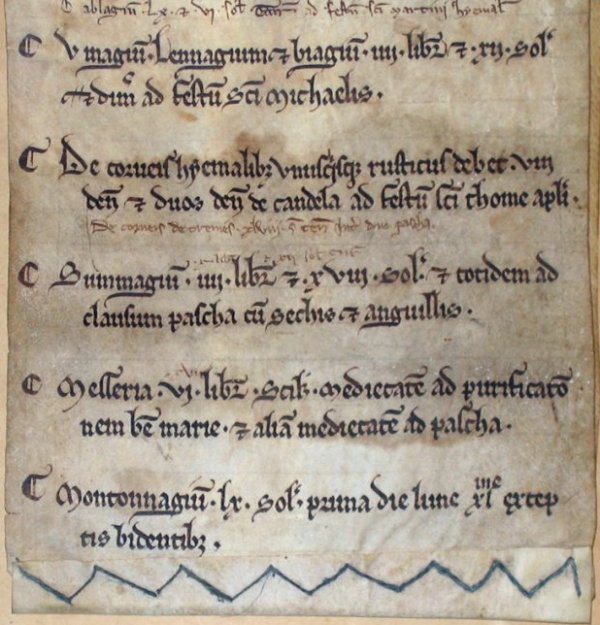 ablagiū. lx. ⁊ vi. sol. ad festū sci martini hyemal
Vinagiū. Lennagium. ⁊ biagiū. iiii. libr̄ ⁊. xii. sol.
⁊ dim̄ ad festū sci Michaelis.
De corueis hyemalibꝫ vnusq̄sqꝫ rusticus debet. viii
den̄ ⁊ duos den̄ de candela ad festū sci thome apli.
De corueis de tremes. xlviii. s
Summagiū. iiii. libr̄ ⁊. xviii. sol. ⁊ totidem ad
clausum pascha cū sechis ⁊ anguillis.
Messeria. vi. libr̄. scilꝫ. Medietatē ad purificatō
nem bē marie. ⁊ aliā medietatē ad pascha.
Montonnagiū. lx. sol. prima die lune xlme excep
tis bidentibꝫ.